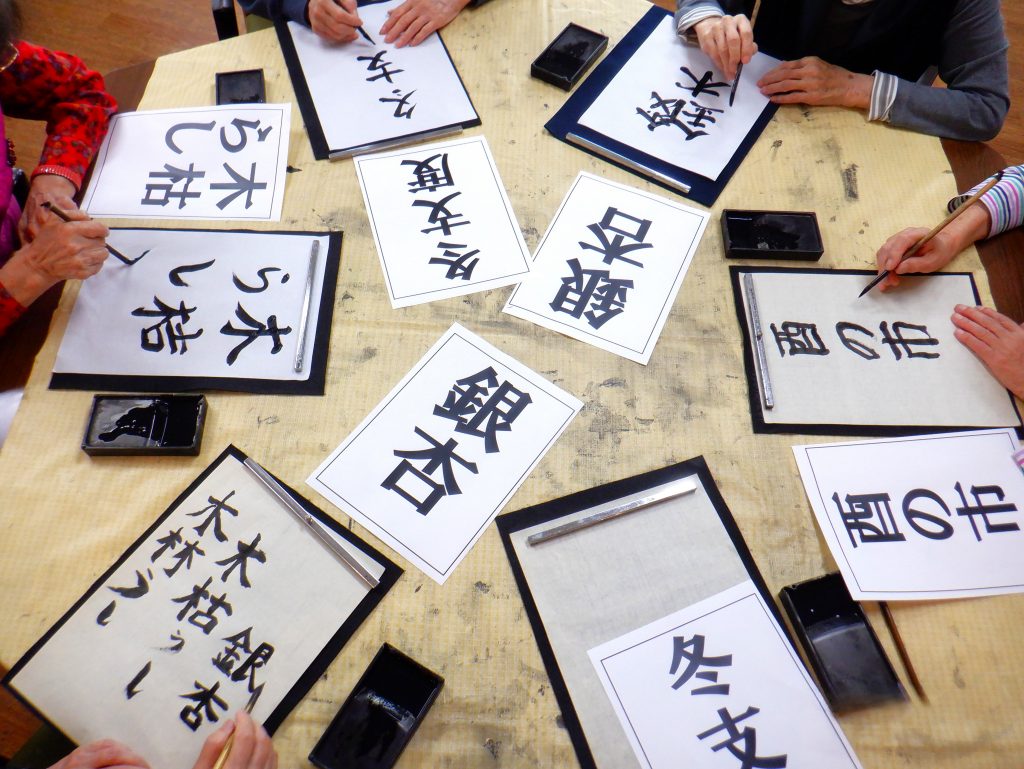 冬支
銀
木枯らし
冬支度
銀杏
木枯らし
酉の市
銀杏
酉の市
銀杏
木枯らし
木枯らし
冬支